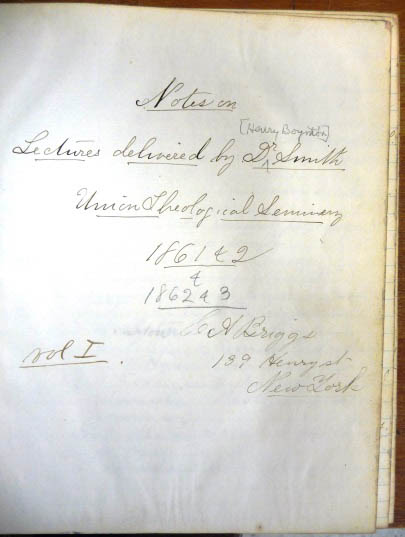 Notes on
[Henry Boynton]
Lectures delivered by Dr Smith
Union Theological Seminary
1861 & 2
&
1862 & 3
C A Briggs
vol I.
139 Henry st
New York